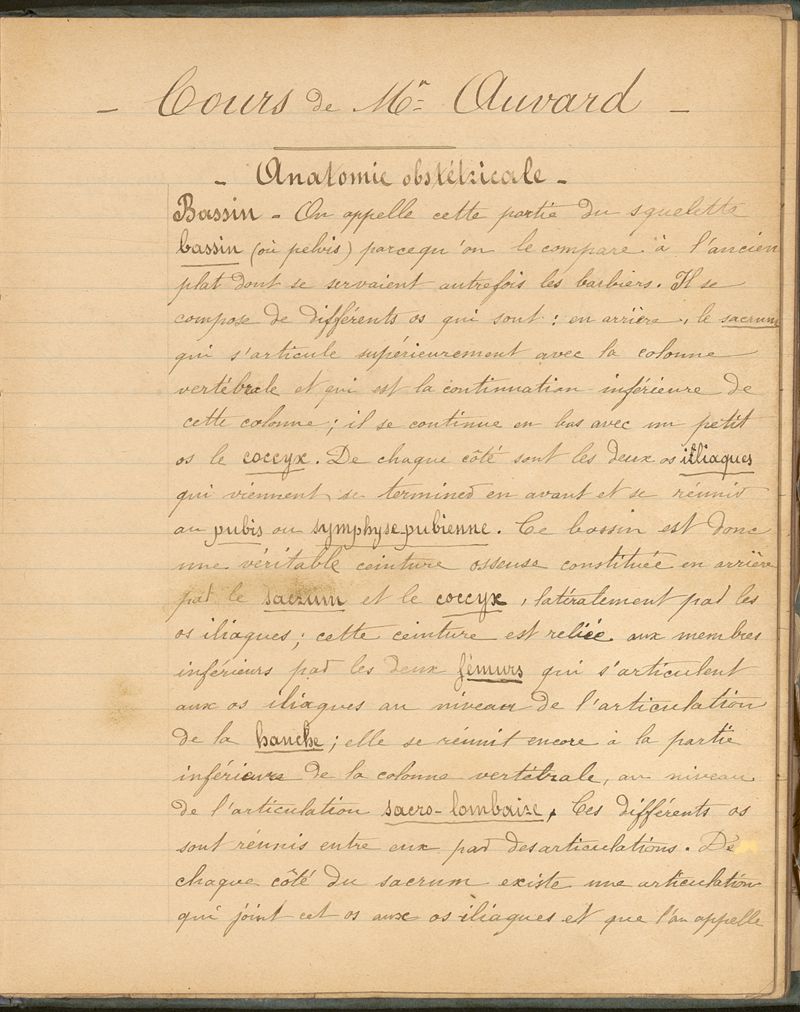 - Cours de Mr Auvard -
- Anatomie obstétricale -
Bassin - On appelle cette partie du squelette
bassin (où pelvis) parcequ'on le compare à l'ancien
plat dont se servaient autrefois les barbiers. Il se
compose de différents os qui sont : en arrière, le sacrum
qui s'articule supérieurement avec la colonne
vertébrale et qui est la continuation inférieure de
cette colonne ; il se continue en bas avec un petit
os le coccyx. De chaque côté sont les deux os iliaques
qui viennent se terminer en avant et se réunir
au pubis ou symphyse-pubienne. Ce bassin est donc
une véritable ceinture osseuse constituée en arrière
par le sacrum et le coccyx, latéralement par les
os iliaques ; cette ceinture est reliée aux membres
inférieurs par les deux fémurs qui s'articulent
aux os iliaques au niveau de l'articulation
de la hanche ; elle se réunit encore à la partie
inférieure de la colonne vertébrale, au niveau
de l'articulation sacro-lombaire. Ces différents os
sont réunis entre eux par des articulations. De
chaque côté du sacrum existe une articulation
qui joint cet os aux os iliaques et que l'on appelle